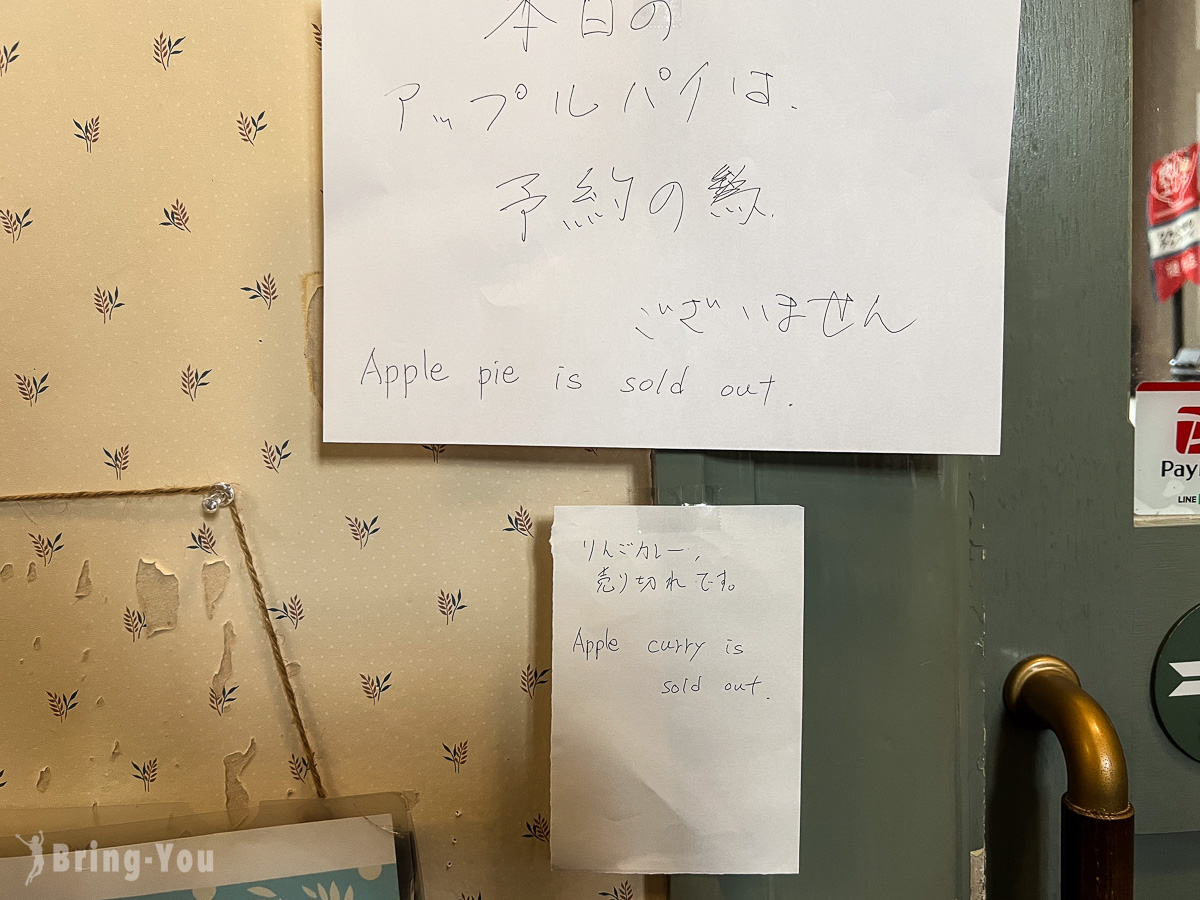 本日の
アップルパイは、
予約の為
ございません
Apple pie is sold out.
りんごカレー、
売り切れです。
Apple curry is
sold out.
Pay
LINE
Bring-You